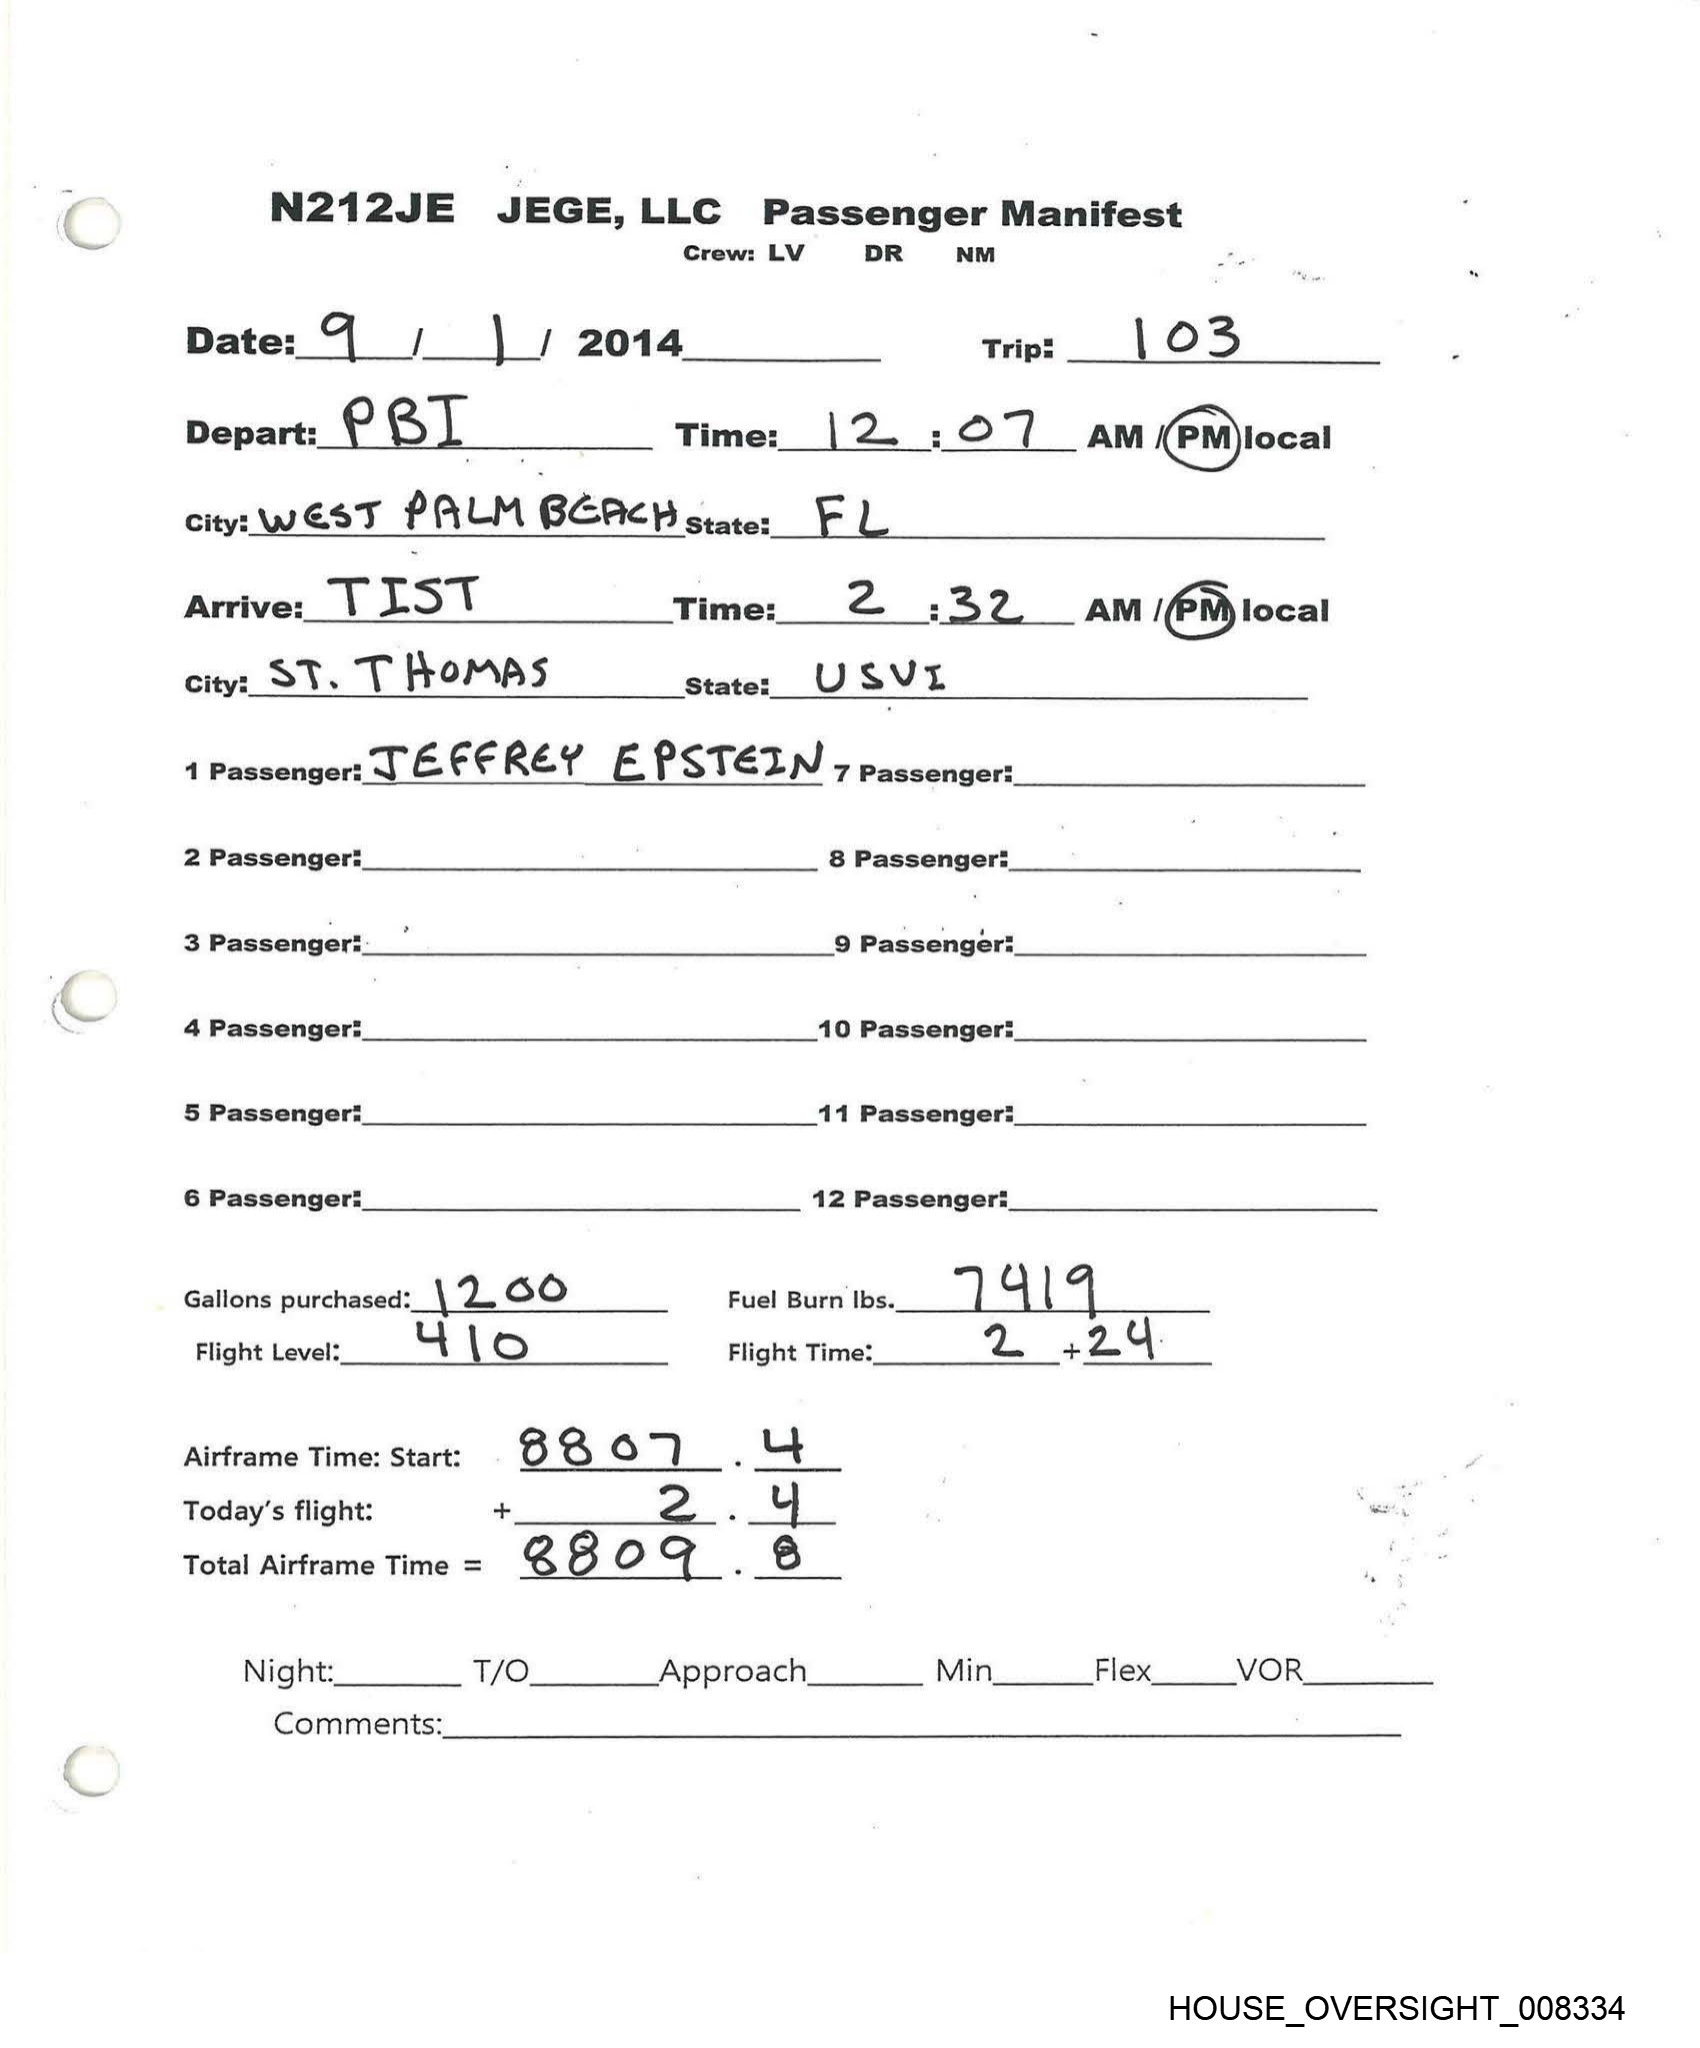 N212JE JEGE, LLC Passenger Manifest
Crew: LV DR NM
Date: 9 / 1 / 2014 Trip: 103
Depart: PBI Time: 12 : 07 AM / PM local
City: WEST PALM BEACH State: FL
Arrive: TIST Time: 2 : 32 AM / PM local
City: ST. THOMAS State: USVI
1 Passenger: JEFFREY EPSTEIN 7 Passenger:
2 Passenger: 8 Passenger:
3 Passenger: 9 Passenger:
4 Passenger: 10 Passenger:
5 Passenger: 11 Passenger:
6 Passenger: 12 Passenger:
Gallons purchased: 1200 Fuel Burn lbs. 7419
Flight Level: 410 Flight Time: 2 + 24
Airframe Time: Start: 8807 . 4
Today's flight: + 2 . 4
Total Airframe Time = 8809 . 8
Night: T/O Approach Min Flex VOR
Comments:
HOUSE_OVERSIGHT_008334